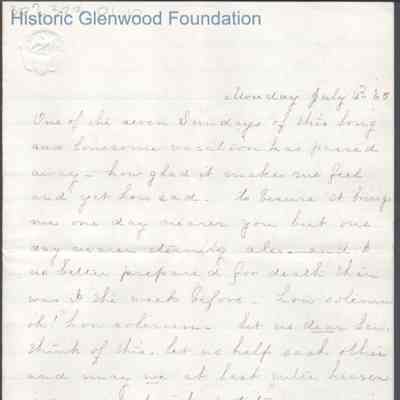 Historic Glenwood Foundation
Monday July
One of the seven Sundays of this long
and lonesome vacation has passed
away - how glad it makes me feel
and yet how sad. to be sure it brings
me one day nearer you but one
day nearer eternity also - and I
no better prepared for death than
was I the week before - how solemn
oh! how solemn. let us dear
think of this. let us help each other
and may we at last enter heaven